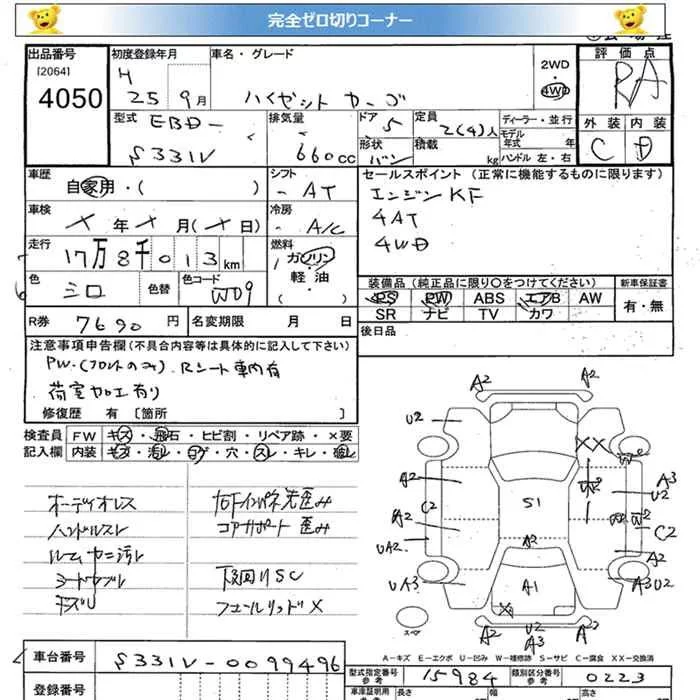 完全ゼロ切りコーナー
出品番号
[2064]
4050
初度登録年月
H
25 9月
車名・グレード
ハイゼット カーゴ
2WD
4WD
評価点
RA
外装 内装
C D
型式
EBD-
S331V
排気量
660cc
ドア
5
形状
バン
定員
2(4)人
積載
kg
ディーラー・並行
モデル
年式 年
ハンドル 左・右
車歴
自家用・( )
シフト
- AT
セールスポイント (正常に機能するものに限ります)
エンジンKF
4AT
4WD
車検
メ 年 メ 月(メ日)
冷房
- A/C
走行
17万8千013km
燃料
ガソリン
軽・油
( )
色
シロ
色替
色コード
W09
装備品 (純正品に限り○をつけてください)
PS PW ABS エアB AW
SR ナビ TV カワ
新車保証書
有・無
後日品
R券 7690 円
名変期限 月 日
注意事項申告欄(不具合内容等は具体的に記入して下さい)
PW.(フロントのみ) Rシート車内有
荷室加工有り
修復歴 有 [箇所 ]
検査員
記入欄
FW キズ・飛石・ヒビ割・リペア跡・×要
内装 キズ・汚レ・コゲ・穴・スレ・キレ・破レ
オーディオレス
ハンドルスレ
ルームヤニ汚レ
シートヤブレ
右Fインパネ先歪み
コアサポート歪み
下回りSC
フューエルリッドX
A2
A2
U2
XX
W2
A2
C2
A2
UA2
UA3
S1
A2
A1
W2
A3
U2
W2 W2
C2
A2
A3U2
X
A2
U2
A3
A2
A3
スペア
A-キズ E-エクボ U-凹み W-補修跡 S-サビ C-腐食 XX-交換済
車台番号
S331V-0099496
登録番号
型式指定番号
参考
15984
類別区分番号
参考
0223
車庫証明用
参考
長さ
幅
高さ